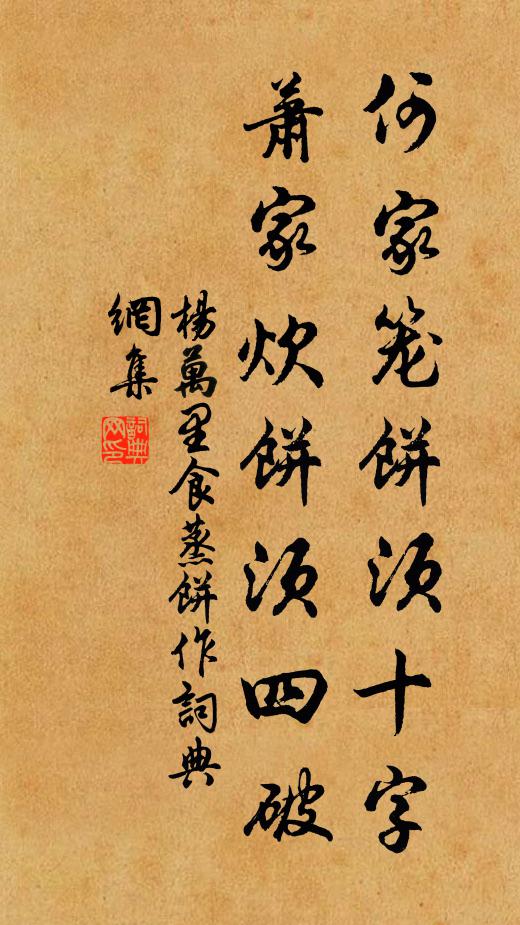 何家笼餅須十字
蕭家炊餅須四破
楊萬里食蒸餅作詞典
網集
詞典
网印